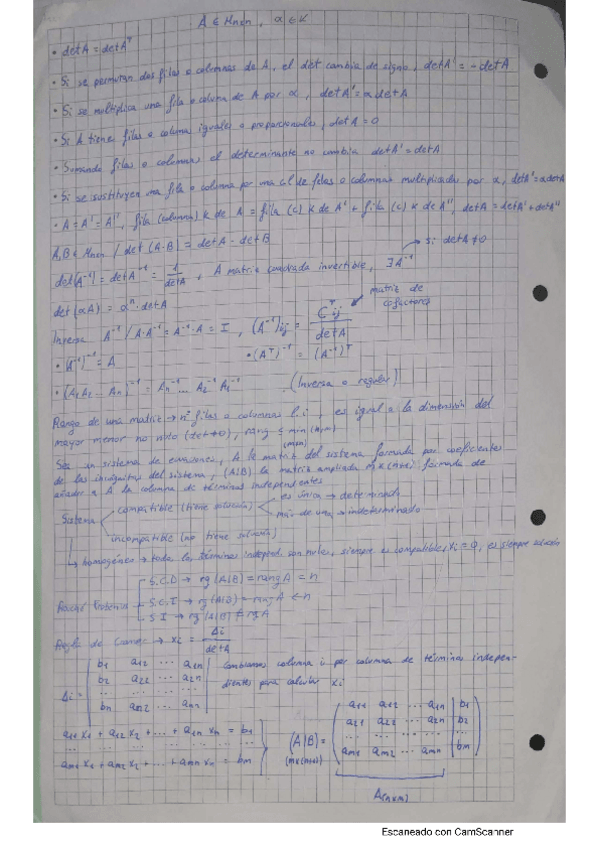 A ∈ Mnxn, α ∈ K
• detA = detAᵀ
• Si se permutan dos filas o columnas de A, el det cambia de signo, detA' = -detA
• Si se multiplica una fila o columna de A por α, detA' = α detA
• Si A tiene filas o columa iguales o proporcionales, detA = 0
• Sumando filas o columnas el determinante no cambia detA' = detA
• Si se sustituyen una fila o columna por una cl de filas o columnas multiplicadas por α, detA' = α detA
• A = A' = A'', fila (columna) K de A = fila (c) K de A' + fila (c) K de A'', detA = detA' + detA''
A, B ∈ Mnxn / det (A·B) = detA · detB
→ si detA ≠ 0
det(A⁻¹) = detA⁻¹ = 1/detA, A matriz cuadrada invertible, ∃A⁻¹
det (αA) = αⁿ · detA
matriz de cofactores
Inversa A⁻¹ / A·A⁻¹ = A⁻¹·A = I, (A⁻¹)ij = Cᵀij / detA
• (A⁻¹)⁻¹ = A • (Aᵀ)⁻¹ = (A⁻¹)ᵀ
• (A1 A2 ... An)⁻¹ = An⁻¹ ... A2⁻¹ A1⁻¹ (Inversa o regular)
Rango de una matriz → nº filas o columnas l.i, es igual a la dimensión del
mayor menor no nulo (det ≠ 0), rang ≤ min (n,m)
(mxn)
Sea un sistema de ecuaciones, A la matriz del sistema formada por coeficientes
de las incógnitas del sistema, (A|B) la matriz ampliada mx(n+1) formada de
añadir a A la columna de términos independientes
es única → determinado
Sistema compatible (tiene solución)
más de una → indeterminado
incompatible (no tiene solución)
→ homogéneo → todos los términos independ. son nulos, siempre es compatible, xi = 0, es siempre solución
S.C.D → rg (A|B) = rangA = n
Rouché Frobenius S.C.I → rg (A|B) = rangA < n
S.I → rg (A|B) ≠ rgA
Regla de Cramer → xi = Δi / detA
Δi = | b1 a12 ... a1n | Cambiamos columna i por columna de términos indepen-
| b2 a22 ... a2n | dientes para calcular xi
| ... ... ... ... |
| bn an2 ... ann |
a11 x1 + a12 x2 + ... + a1n xn = b1
... ... ... ...
am1 x1 + am2 x2 + ... + amn xn = bm
(A|B) = ( a11 a12 ... a1n | b1
(mx(n+1)) a21 a22 ... a2n | b2
... ... ... ...
am1 am2 ... amn | bm )
A(nxm)
Escaneado con CamScanner